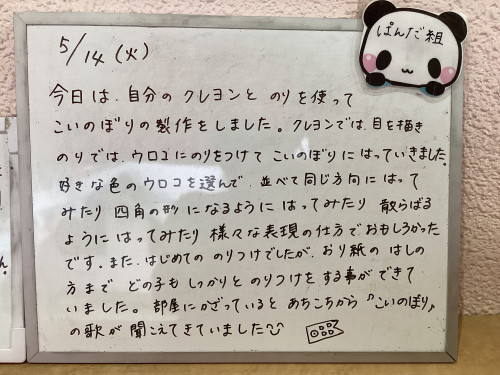 5/14(火)
ぱんだ組
今日は、自分のクレヨンと のりを使って
こいのぼりの製作をしました。クレヨンでは、目を描き
のりでは、ウロコにのりをつけて こいのぼりに はっていきました。
好きな色のウロコを選んで、並べて同じ方向に はって
みたり 四角の形 になるように はってみたり 散らばる
ように はってみたり 様々な表現の仕方でおもしろかった
です。また、はじめての のりつけでしたが、おり紙の はしの
方まで どの子も しっかりと のりつけをする事ができて
いました。部屋にかざっていると あちこちから ♪こいのぼり♪
の歌が 聞こえてきていました